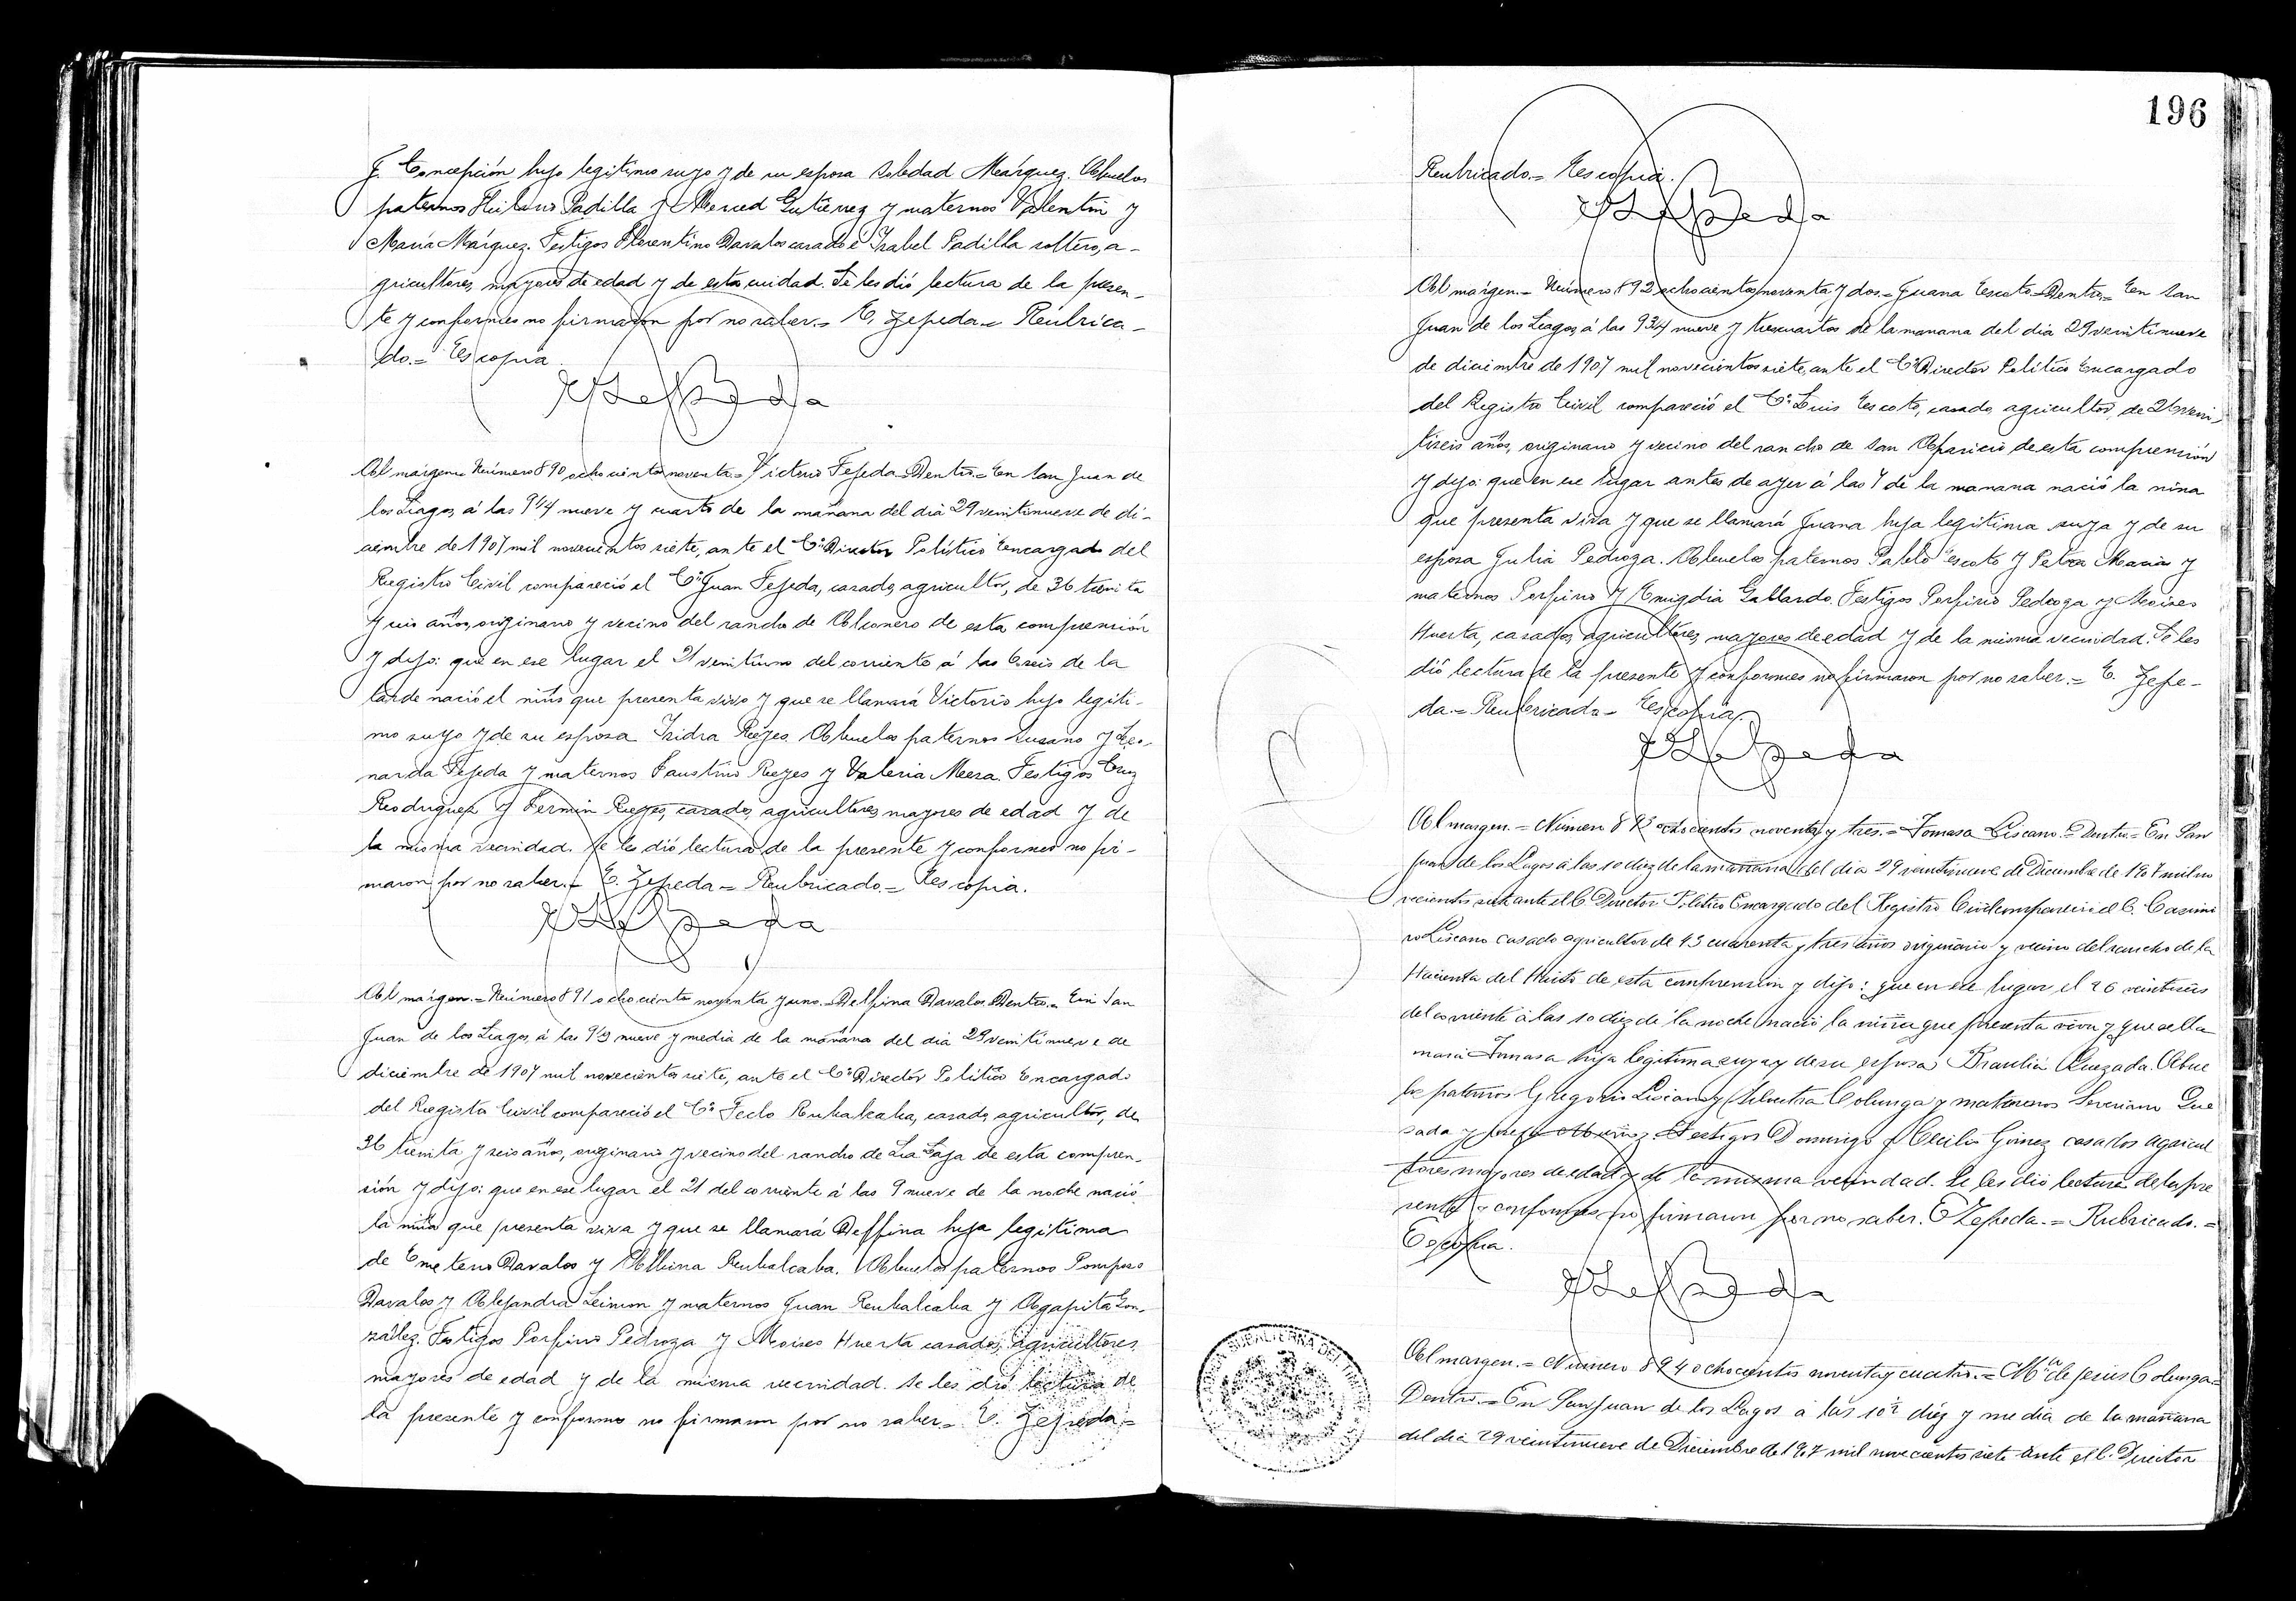 J. Concepción hijo legítimo suyo y de su esposa Soledad Márquez. Abuelos
paternos Hilario Padilla y Merced Gutiérrez y maternos Valentín y
María Márquez. Testigos Florentino Davalos casado é Isabel Padilla soltero, a-
gricultores, mayores de edad y de esta ciudad. Se les dió lectura de la presen-
te y conformes no firmaron por no saber.= E. Zepeda.= Rúbrica-
do.= Es copia.
EZepeda
Al margen.= Número 890 ochocientos noventa.= Victorio Tejeda.=Dentro.= En San Juan de
los Lagos, á las 9 1/4 nueve y cuarto de la mañana del día 29 veintinueve de di-
ciembre de 1907 mil novecientos siete, ante el C. Director Político Encargado del
Registro Civil compareció el C. Juan Tejeda, casado, agricultor, de 36 treinta
y seis años, originario y vecino del rancho de Alconero de esta comprensión
y dijo: que en ese lugar el 21 veintiuno del corriente á las 6 seis de la
tarde nació el niño que presenta vivo y que se llamará Victorio hijo legíti-
mo suyo y de su esposa Isidra Reyes. Abuelos paternos Susano y Leo-
narda Tejeda y maternos Faustino Reyes y Valeria Mesa. Testigos Cruz
Rodriguez y Fermín Reyes, casados, agricultores, mayores de edad y de
la misma vecindad. Se les dió lectura de la presente y conformes no fir-
maron por no saber.= E. Zepeda.= Rubricado.= Es copia.
EZepeda
Al margen.= Número 891 ochocientos noventa y uno.=Delfina Davalos.Dentro.= En San
Juan de los Lagos, á las 9 1/2 nueve y media de la mañana del día 29 veintinueve de
diciembre de 1907 mil novecientos siete, ante el C. Director Político Encargado
del Registro Civil compareció el C. Teclo Rubalcaba, casado, agricultor, de
36 treinta y seis años, originario y vecino del rancho de La Laja de esta compren-
sión y dijo: que en ese lugar el 21 del corriente á las 9 nueve de la noche nació
la niña que presenta viva y que se llamará Delfina hija legítima
de Emeterio Davalos y Albina Rubalcaba. Abuelos paternos Pomposo
Davalos y Alejandra Leimon y maternos Juan Rubalcaba y Agapita Gon-
zález. Testigos Porfirio Pedroza y Moises Huerta casados, agricultores,
mayores de edad y de la misma vecindad. Se les dió lectura de
la presente y conformes no firmaron por no saber.= E. Zepeda.=
196
Rubricado.= Es copia.
EZepeda
Al margen.= Número 892 ochocientos noventa y dos.= Juana Escoto.=Dentro.= En San
Juan de los Lagos, á las 9 3/4 nueve y tres cuartos de la mañana del día 29 veintinueve
de diciembre de 1907 mil novecientos siete, ante el C. Director Político Encargado
del Registro Civil compareció el C. Luis Escoto, casado, agricultor, de 26 vein-
tiseis años, originario y vecino del rancho de San Aparicio de esta comprensión
y dijo: que en ese lugar antes de ayer á las 7 de la mañana nació la niña
que presenta viva y que se llamará Juana hija legítima suya y de su
esposa Julia Pedroza. Abuelos paternos Pablo Escoto y Petra Macías y
maternos Porfirio y Emigdia Gallardo. Testigos Porfirio Pedroza y Moises
Huerta, casados, agricultores, mayores de edad y de la misma vecindad. Se les
dió lectura de la presente y conformes no firmaron por no saber.= E. Zepe-
da.= Rubricado.= Es copia.
EZepeda
Al margen.= Número 893 ochocientos noventa y tres.= Tomasa Liscano.=Dentro.= En San
Juan de los Lagos á las 10 diez de la mañana del día 29 veintinueve de Diciembre de 1907 mil no
vecientos siete ante el C. Director Político Encargado del Registro Civil compareció el C. Casimi
ro Liscano casado agricultor de 43 cuarenta y tres años originario y vecino del rancho de la
Hacienta del de esta comprensión y dijo: que en ese lugar el 26 veintiseis
del corriente á las 10 diez de la noche nació la niña que presenta viva y que se lla
mará Tomasa hija legítima suya y de su esposa Braulia Quezada. Abue
los paternos Gregorio Liscano y Silvestra Colunga y maternos Severiano Que
zada y Josefa Muñoz. Testigos Domingo y Cecilio Gómez casados agricul
tores mayores de edad y de la misma vecindad. Se les dió lectura de la pre
sente y conformes no firmaron por no saber. E Zepeda.= Rubricado.=
Es copia.
EZepeda
Al margen.= Número 894 ochocientos noventa y cuatro.= Ma. de Jesús Colunga.=
Dentro.= En San Juan de los Lagos á las 10 1/2 diez y media de la mañana
del día 29 veintinueve de Diciembre de 1907 mil novecientos siete ante el C. Director